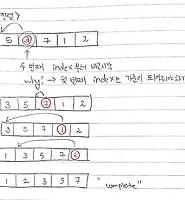 정렬>
5 ③ 7 1 2
두 번째 index 부터 시작
why? → 첫 번째 index는 기준이 되어야하기
3 5 ⑦ 1 2
3 5 7 ① 2
1 3 5 7 ②
1 2 3 5 7 "complete"